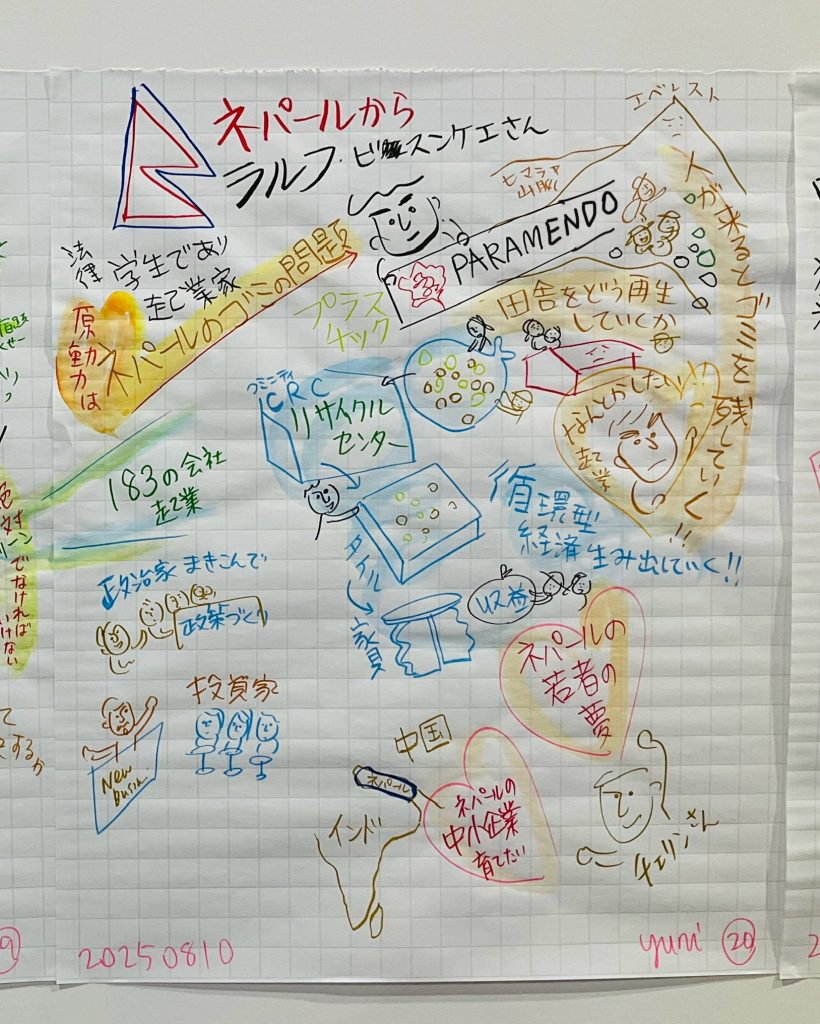 ネパールから
ラルフ・ビスンケエさん
エベレスト
ヒマラヤ
山脈
PARAMENDO
人が来るとゴミを残していく!!
法律
学生であり
起業家
原動力は
ネパールのゴミの問題
プラス
チック
田舎をどう再生
していくか
なんとかしたい
起業
コミニティ
CRC
リサイクル
センター
183の会社
起業
循環型
経済生み出していく!!
タイル
家具
収益
政治家 まきこんで
政策づくり
投資家
New
busin.
ネパールの
若者の
夢
中国
ネパール
インド
ネパールの
中小企業
育てたい
チェリンさん
20250810
yuni 20
絶対
でなければ
いけない